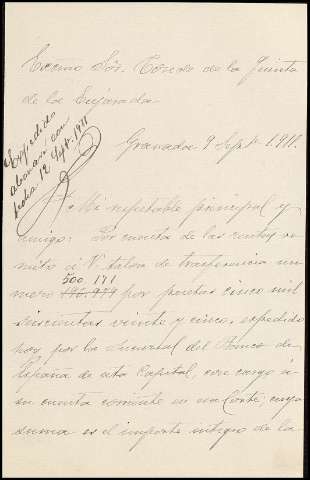 Excmo Sór. Conde de la Quinta
de la Enjarada
Expedido
abonaré con
fecha 12 Sept. 1911
Granada 9 Sept. 1.911.
Mi respetable principal y
amigo: Por cuenta de las rentas re-
mito á V. talon de transferencia nú-
500,171
mero 196.979 por pesetas cinco mil
seiscientas veinte y cinco, expedido
hoy por la Sucursal del Banco de
España de esta Capital, con cargo á
su cuenta corriente en esa Corte, cuya
suma es el importe integro de la